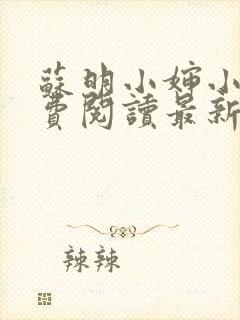 蘇明小婶小
費閱讀最新
辣辣